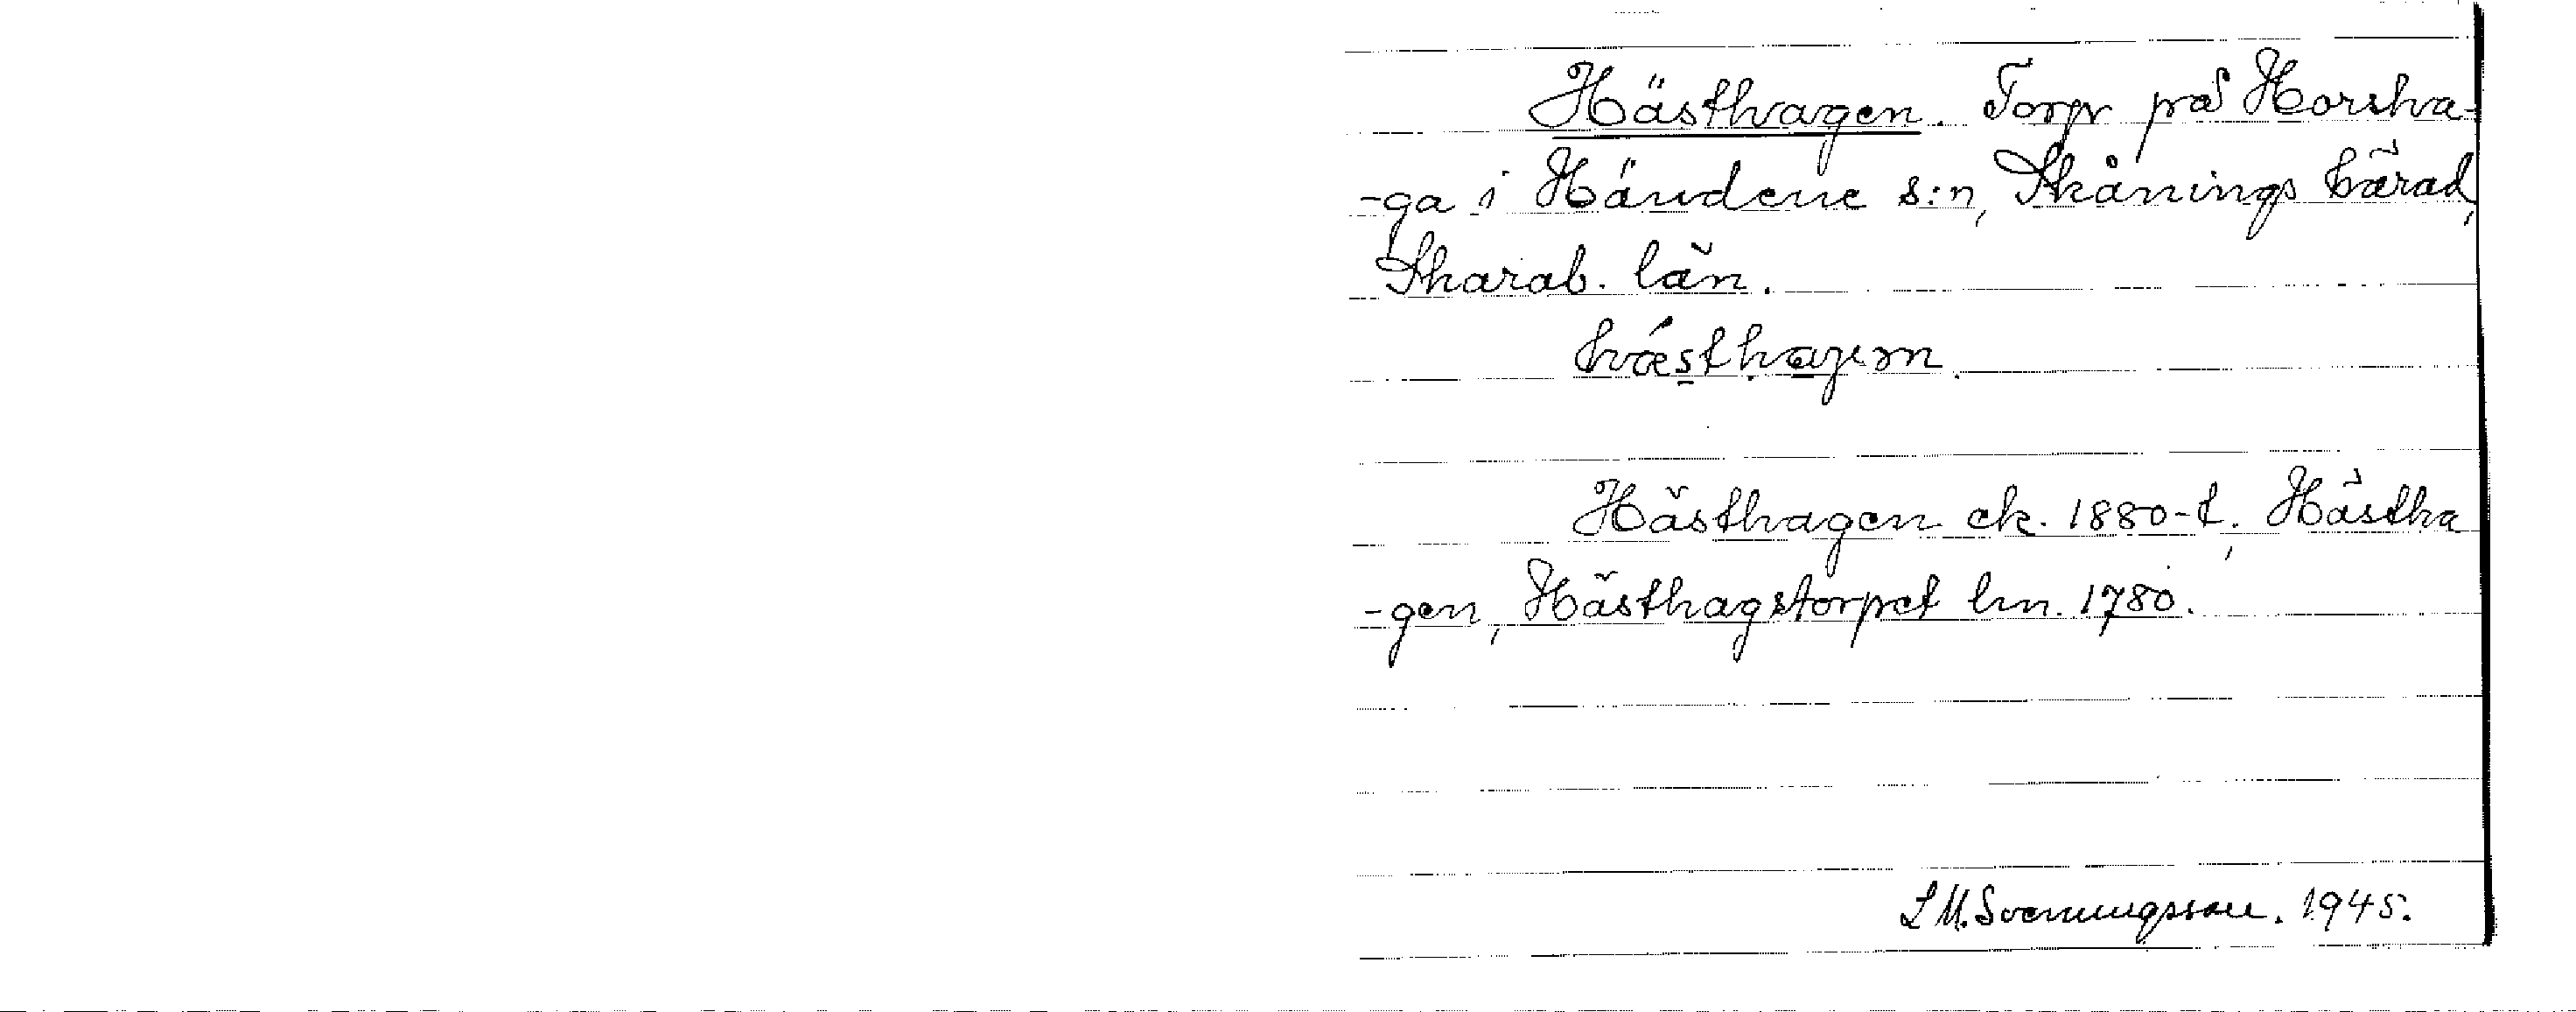 Hästhagen. Torp på Horsha-
-ga i Händene s:n, Skånings härad,
Skarab. län.
Hästhagen ek. 1880-t, Hästha
-gen, Hästhagstorpet hm. 1780.
L M. Svenungsson. 1945.